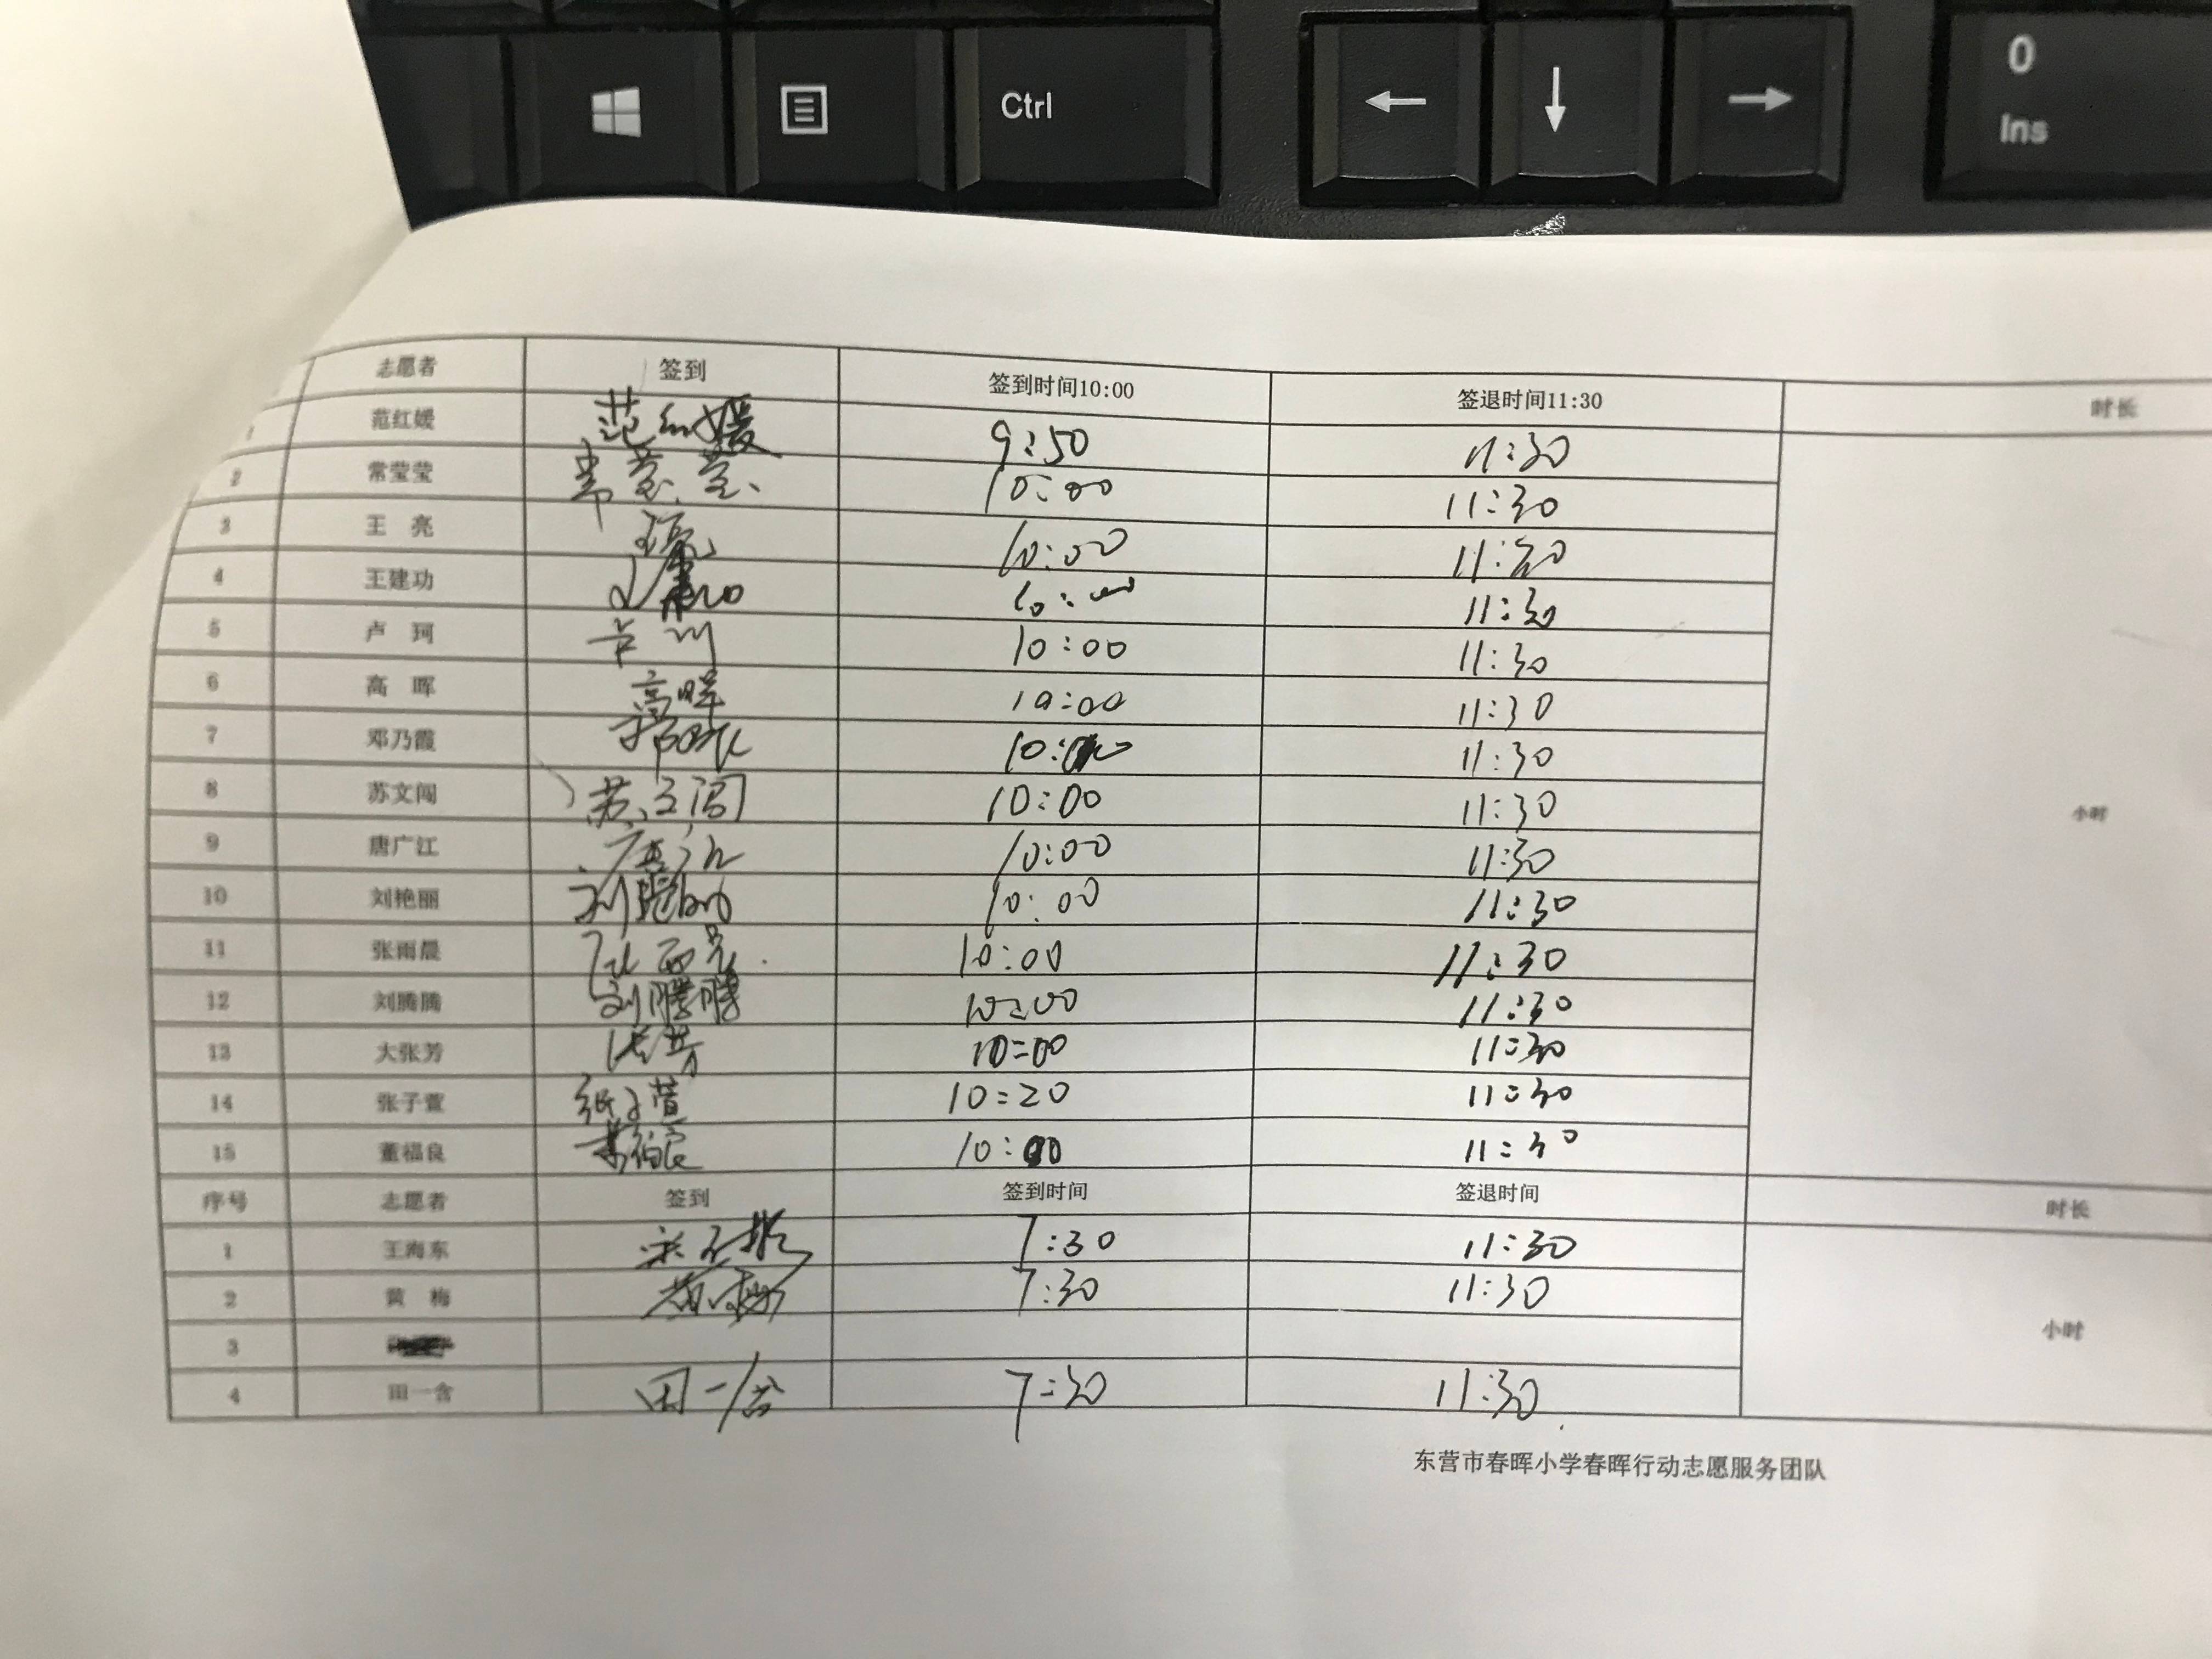 Ctrl
0
Ins
志愿者 签到 签到时间10:00 签退时间11:30 时长
1 范红媛 范红媛 9:50 11:30
2 常莹莹 常莹莹 10:00 11:30
3 王 亮 王亮 10:00 11:30
4 王建功 10:00 11:30
5 卢 珂 10:00 11:30
6 高 晖 高晖 10:00 11:30
7 邓乃霞 10:00 11:30
8 苏文闯 苏文闯 10:00 11:30 小时
9 唐广江 唐广江 10:00 11:30
10 刘艳丽 刘艳丽 10:00 11:30
11 张雨晨 张雨晨 10:00 11:30
12 刘腾腾 刘腾腾 10:00 11:30
13 大张芳 张芳 10:00 11:30
14 张子萱 张子萱 10:20 11:30
15 董福良 董福良 10:00 11:30
序号 志愿者 签到 签到时间 签退时间 时长
1 王海东 7:30 11:30
2 黄 梅 黄梅 7:30 11:30
3 小时
4 田一含 田一含 7:30 11:30
东营市春晖小学春晖行动志愿服务团队